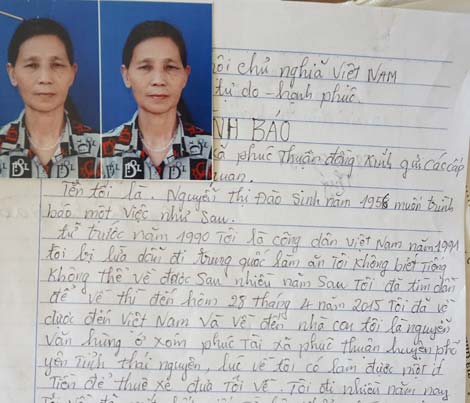 hội chủ nghĩa Việt NAM
tự do - hạnh phúc.
NH BÁO
xã phúc Thuận đồng kính gửi các cấp
quan.
Tên tôi là. Nguyễn thị Đào Sinh năm 1956 muốn trình
báo một việc như sau.
từ trước năm 1990 Tôi là công dân việt Nam năm 1991
tôi bị lừa đảo đi trung quốc làm ăn Tôi không biết Tiếng
không thể về được sau nhiều năm Sau Tôi đã tìm dần
để về thì đến hôm 28 tháng 4 năm 2015 Tôi đã về
được đến Việt Nam và về đến nhà con tôi là nguyễn
văn hưng ở xóm phúc Tài xã phúc thuận huyện phổ
yên Tỉnh thái nguyên, lúc về tôi có làm được một ít
Tiền để thuê xe đưa Tôi về. Tôi đi nhiều năm nay